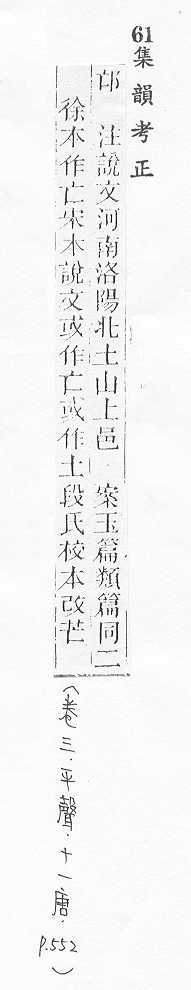 61集韻考正
邙　注說文河南洛陽北土山上邑　案玉篇類篇同二
徐本作亡宋本說文或作亡或作土段氏校本改芒
(卷三.平聲.十一唐.p.552)